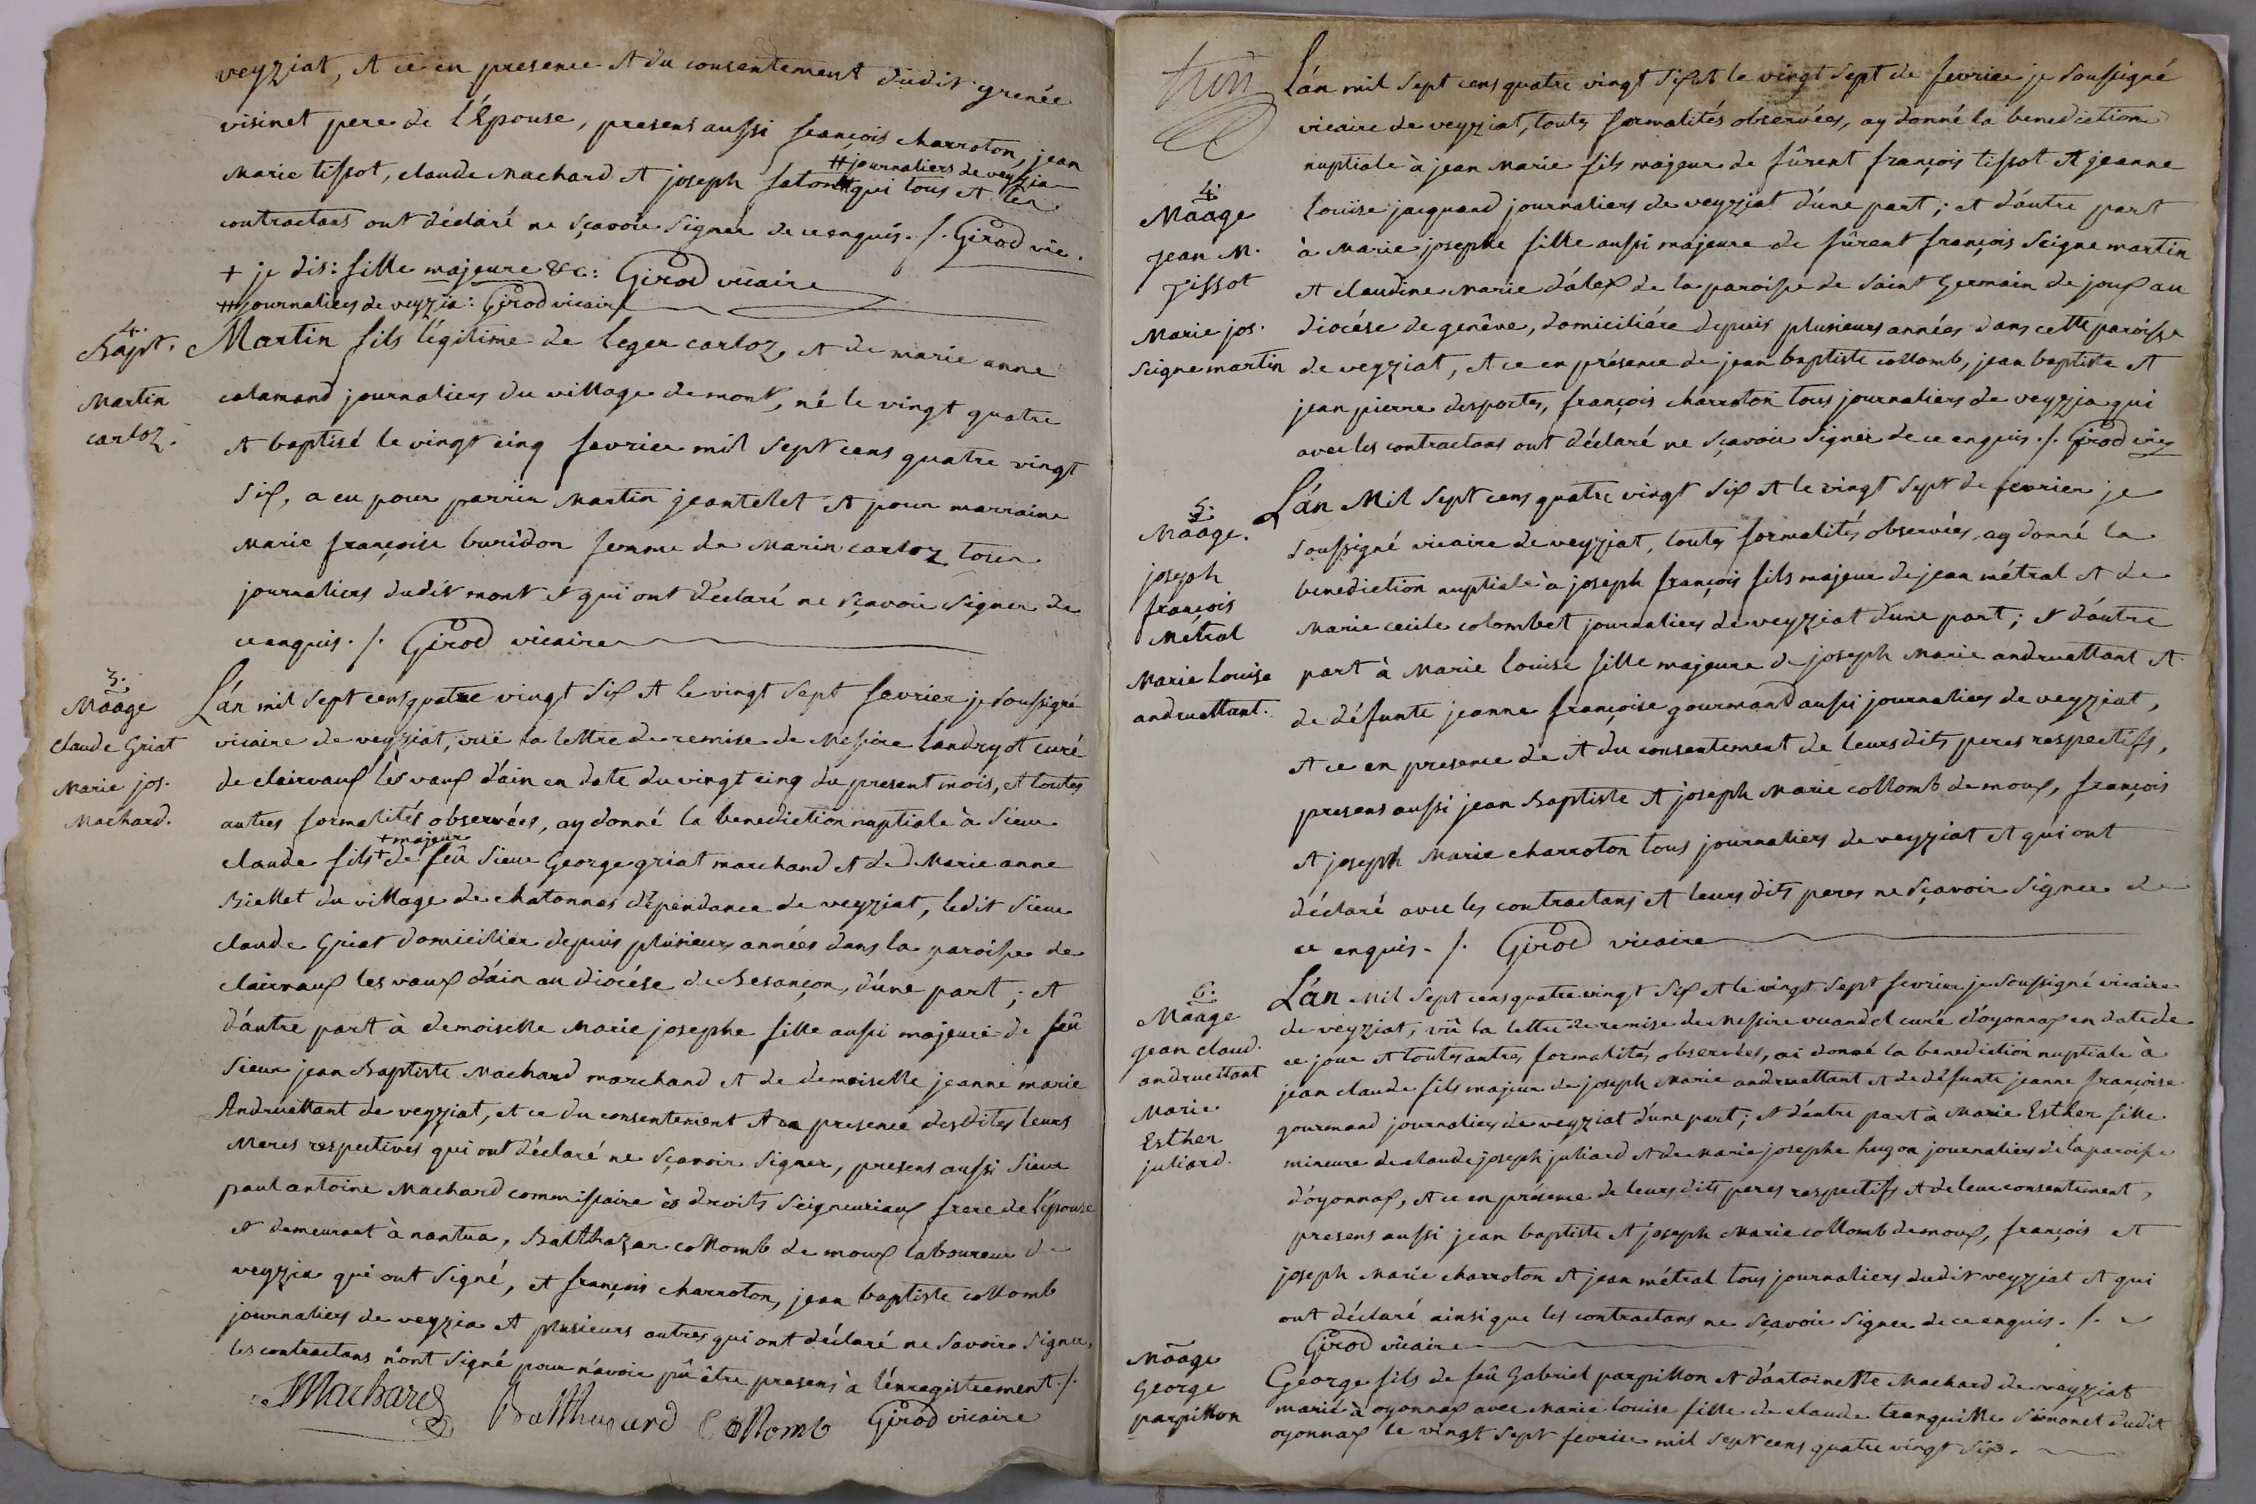 veyziat, et ce en presence et du consentement dudit grenée
visinet pere de l'Epouse, presens aussi françois charroton, jean
## journaliers de veyzia
Marie tissot, claude Machard et joseph ## qui tous et les
contractans ont déclaré ne sçavoir signer de ce enquis. /. Girod vic.
+ je dis: fille majeure &c: Girod vicaire
## journaliers de veyzia: Girod vicaire
4.
Bapt.
Martin
carloz.
Martin fils légitime de leger carloz et de marie anne
calamand journaliers du village de mont, né le vingt quatre
et baptisé le vingt cinq fevrier mil sept cens quatre vingt
six, a eu pour parrin Martin jeantelet et pour marraine
Marie françoise buridon femme de Marin carloz tous
journaliers dudit mont et qui ont déclaré ne sçavoir signer de
ce enquis. /. Girod vicaire
3.
Mãage
claude Griat
Marie jos.
Machard.
L'an mil sept cens quatre vingt six et le vingt sept fevrier je soussigné
vicaire de veyziat, vüe la lettre de remise de Messire Landryot curé
de clairvaux lès vaux d'ain en date du vingt cinq du present mois, et toutes
autres formalités observées, ay donné la benediction nuptiale à sieur
+ majeur
claude fils + de feû sieur George griat marchand et de Marie anne
Biellet du village de chatonnas dépendance de veyziat, ledit sieur
claude Griat domicilier depuis plusieurs années dans la paroisse de
clairvaux les vaux d'ain au diocése de Besançon, d'une part; et
d'autre part à demoiselle Marie josephe fille aussi majeure de feû
sieur jean Baptiste Machard marchand et de demoiselle jeanne marie
Andruëttant de veyziat, et ce du consentement et en presence desdites leurs
Meres respectives qui ont déclaré ne sçavoir signer, presens aussi sieur
paul antoine Machard commissaire ès droits seigneuriaux frere de l'épouse
et demeurant à nantua, Balthazar collomb de moux laboureur de
veyzia qui ont signé, et françois charroton, jean baptiste collomb
journaliers de veyzia et plusieurs autres qui ont déclaré ne savoir signer,
les contractans n'ont signé pour n'avoir pû être presens à l'enregistrement. /.
Machard Balthazard Collomb Girod vicaire
L'an mil sept cens quatre vingt six et le vingt sept de fevrier je soussigné
vicaire de veyziat, toutes formalités observées, ay donné la benediction
nuptiale à jean Marie fils majeur de fûrent françois tissot et jeanne
4.
Mãage
jean M.
Tissot
Marie jos.
Seignemartin
louise jacquand journaliers de veyziat d'une part; et d'autre part
à Marie josephe fille aussi majeure de fûrent françois Seigne martin
et claudine Marie d'alex de la paroisse de saint Germain de joux au
diocése de genêve, domiciliée depuis plusieurs années dans cette paroisse
de veyziat, et ce en présence de jean baptiste collomb, jean baptiste et
jean pierre desportes, françois charroton tous journaliers de veyzia qui
avec les contractans ont déclaré ne sçavoir signer de ce enquis. /. Girod vic
5.
Mãage.
joseph
françois
Métral
Marie Louise
andruettant.
L'an Mil sept cens quatre vingt six et le vingt sept de fevrier je
soussigné vicaire de veyziat, toutes formalités observées, ay donné la
benediction nuptiale à joseph françois fils majeur de jean métral et de
Marie cecile colombet journaliers de veyziat d'une part; et d'autre
part à Marie louise fille majeure de joseph Marie andruettant et
de défunte jeanne françoise gourmand aussi journaliers de veyziat,
et ce en presence de et du consentement de leursdits peres respectifs,
presens aussi jean Baptiste et joseph Marie collomb de moux, françois
et joseph Marie charroton tous journaliers de veyziat et qui ont
déclaré avec les contractans et leurs dits peres ne sçavoir signer de
ce enquis. /. Girod vicaire
6.
Mãage
jean claud.
andruettant
Marie
Esther
juliard.
L'an Mil sept cens quatre vingt six et le vingt sept fevrier je soussigné vicaire
de veyziat, vû la lettre de remise de Messire curé d'oyonnax en date de
ce jour et toutes autres formalités observées, ai donné la benediction nuptiale à
jean claude fils majeur de joseph Marie andruettant et de défunte jeanne françoise
gourmand journaliers de veyziat d'une part; et d'autre part à Marie Esther fille
mineure de claude joseph juliard et de Marie josephe hugon journaliers de la paroisse
d'oyonnax, et ce en présence de leursdits peres respectifs et de leur consentement,
presens aussi jean baptiste et joseph Marie collomb de moux, françois et
joseph Marie charroton et jean métral tous journaliers dudit veyziat et qui
ont déclaré ainsi que les contractans ne sçavoir signer de ce enquis. /.
Girod vicaire
Mãage
George
parpillon
George fils de feû Gabriel parpillon et d'antoinette Machard de veyziat
marié à oyonnax avec Marie louise fille de claude tranquille simonet dudit
oyonnax le vingt sept fevrier mil sept cens quatre vingt six.